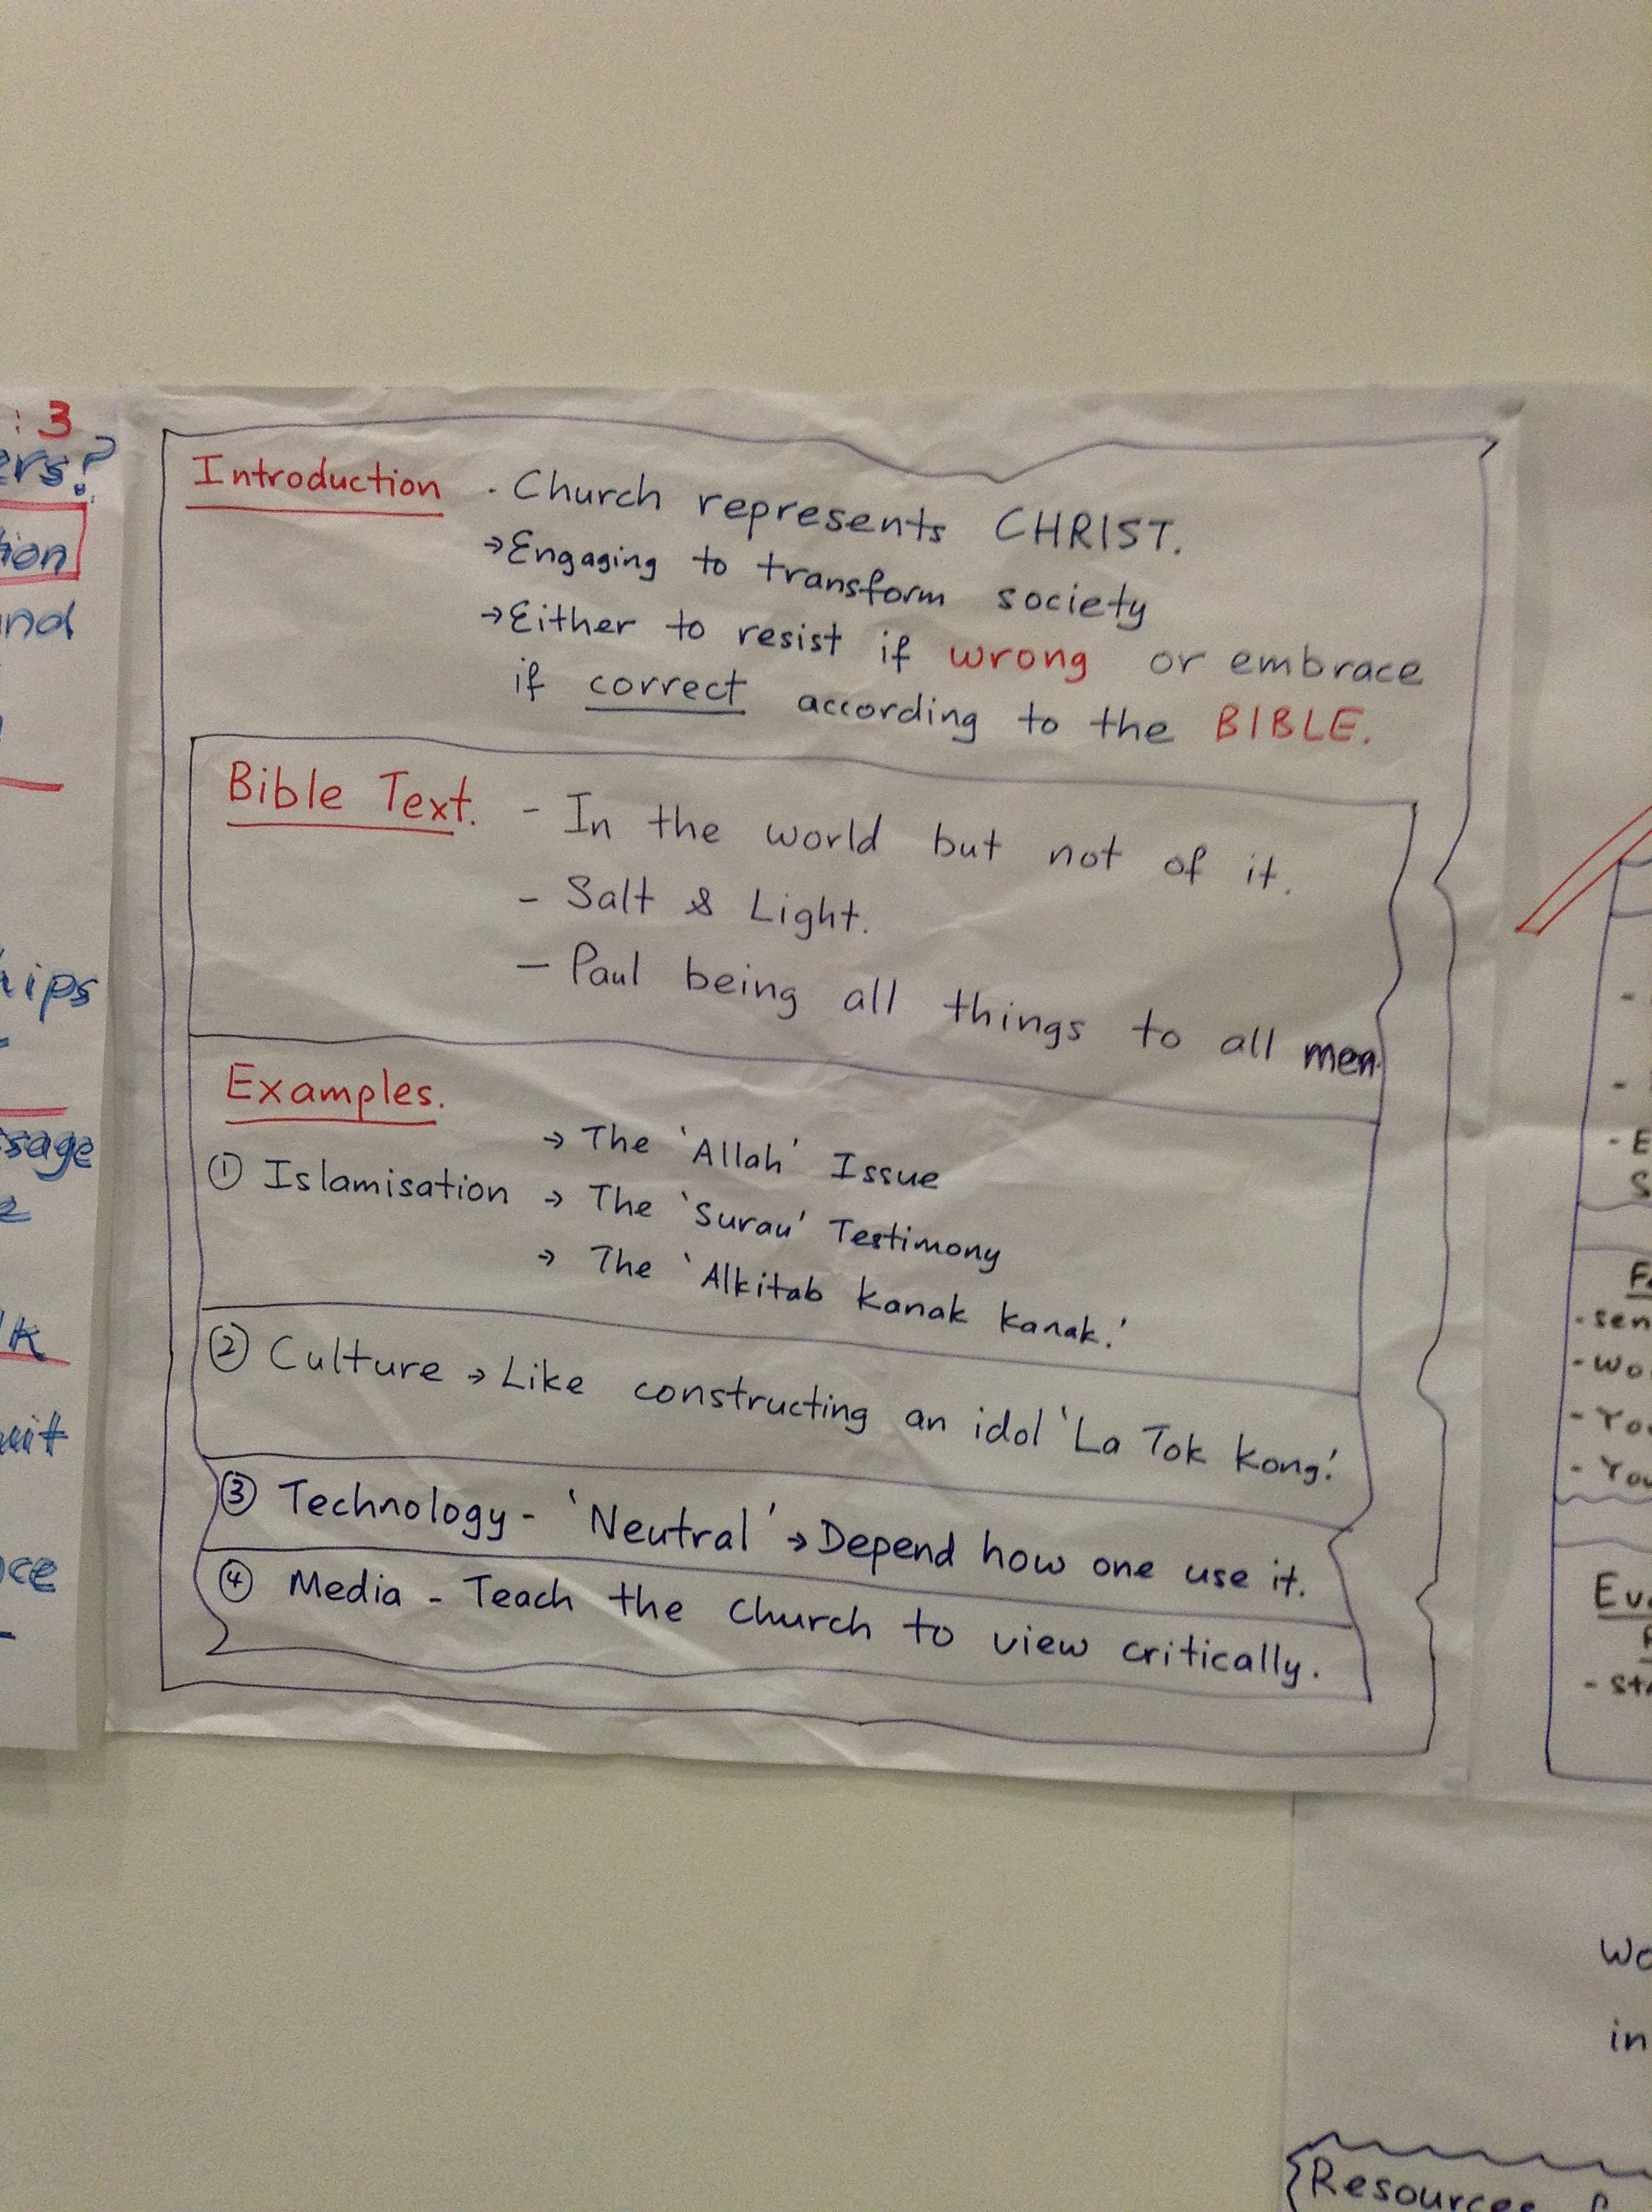 : 3
Introduction · Church represents CHRIST.
→ Engaging to transform society
→ Either to resist if wrong or embrace
if correct according to the BIBLE.
Bible Text. - In the world but not of it.
- Salt & Light.
- Paul being all things to all men.
Examples.
→ The 'Allah' Issue
① Islamisation → The 'Surau' Testimony
→ The 'Alkitab Kanak Kanak.'
② Culture → Like constructing an idol 'La Tok Kong.'
③ Technology - 'Neutral' → Depend how one use it.
④ Media - Teach the Church to view critically.
Resources